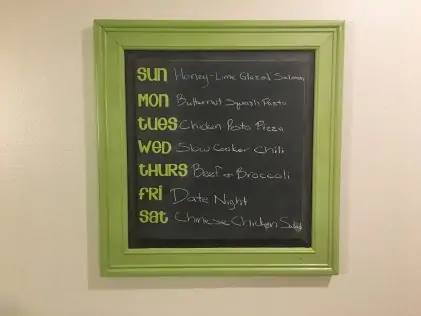 SUN Honey-Lime Glazed Salmon
MON Butternut Squash Pasta
TUES Chicken Pesto Pizza
WED Slow Cooker Chili
THURS Beef & Broccoli
FRI Date Night
SAT Chinese Chicken Salad